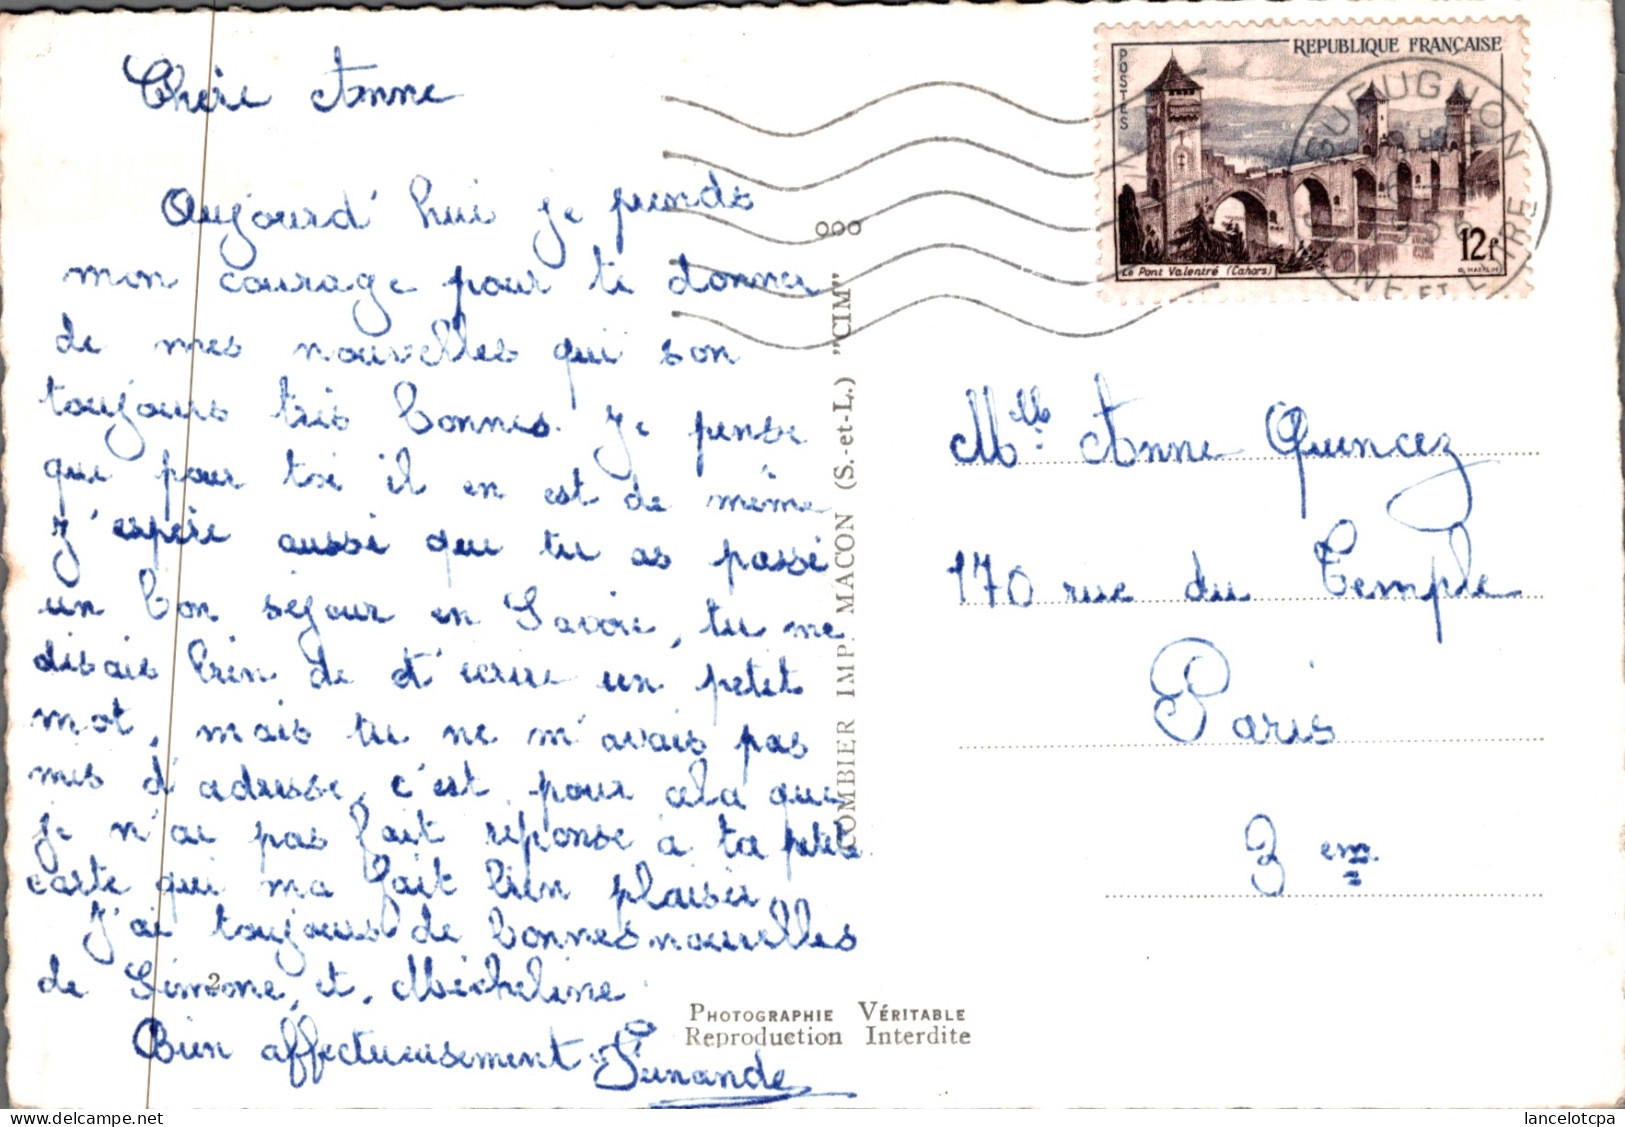 Chère Anne
Aujourd'hui je prends
mon courage pour te donner
de mes nouvelles qui son
toujours très bonnes. Je pense
que pour toi il en est de même
J'espère aussi que tu as passé
un bon séjour en Savoie, tu me
disais bien de t'écrire un petit
mot, mais tu ne m'avais pas
mis d'adresse, c'est pour cela que
je n'ai pas fait réponse à ta petite
carte qui ma fait bien plaisir,
J'ai toujours de bonnes nouvelles
de Simone, et, Micheline
Bien affectueusement
2
000
COMBIER IMP. MACON (S.-et-L.) "CIM"
PHOTOGRAPHIE VÉRITABLE
Reproduction Interdite
POSTES
REPUBLIQUE FRANÇAISE
Le Pont Valentré (Cahors)
12f
GUEUGNON
ET LOIRE
Mlle. Anne Quincez
170 rue du Temple
Paris
3 em
lancelotcpa